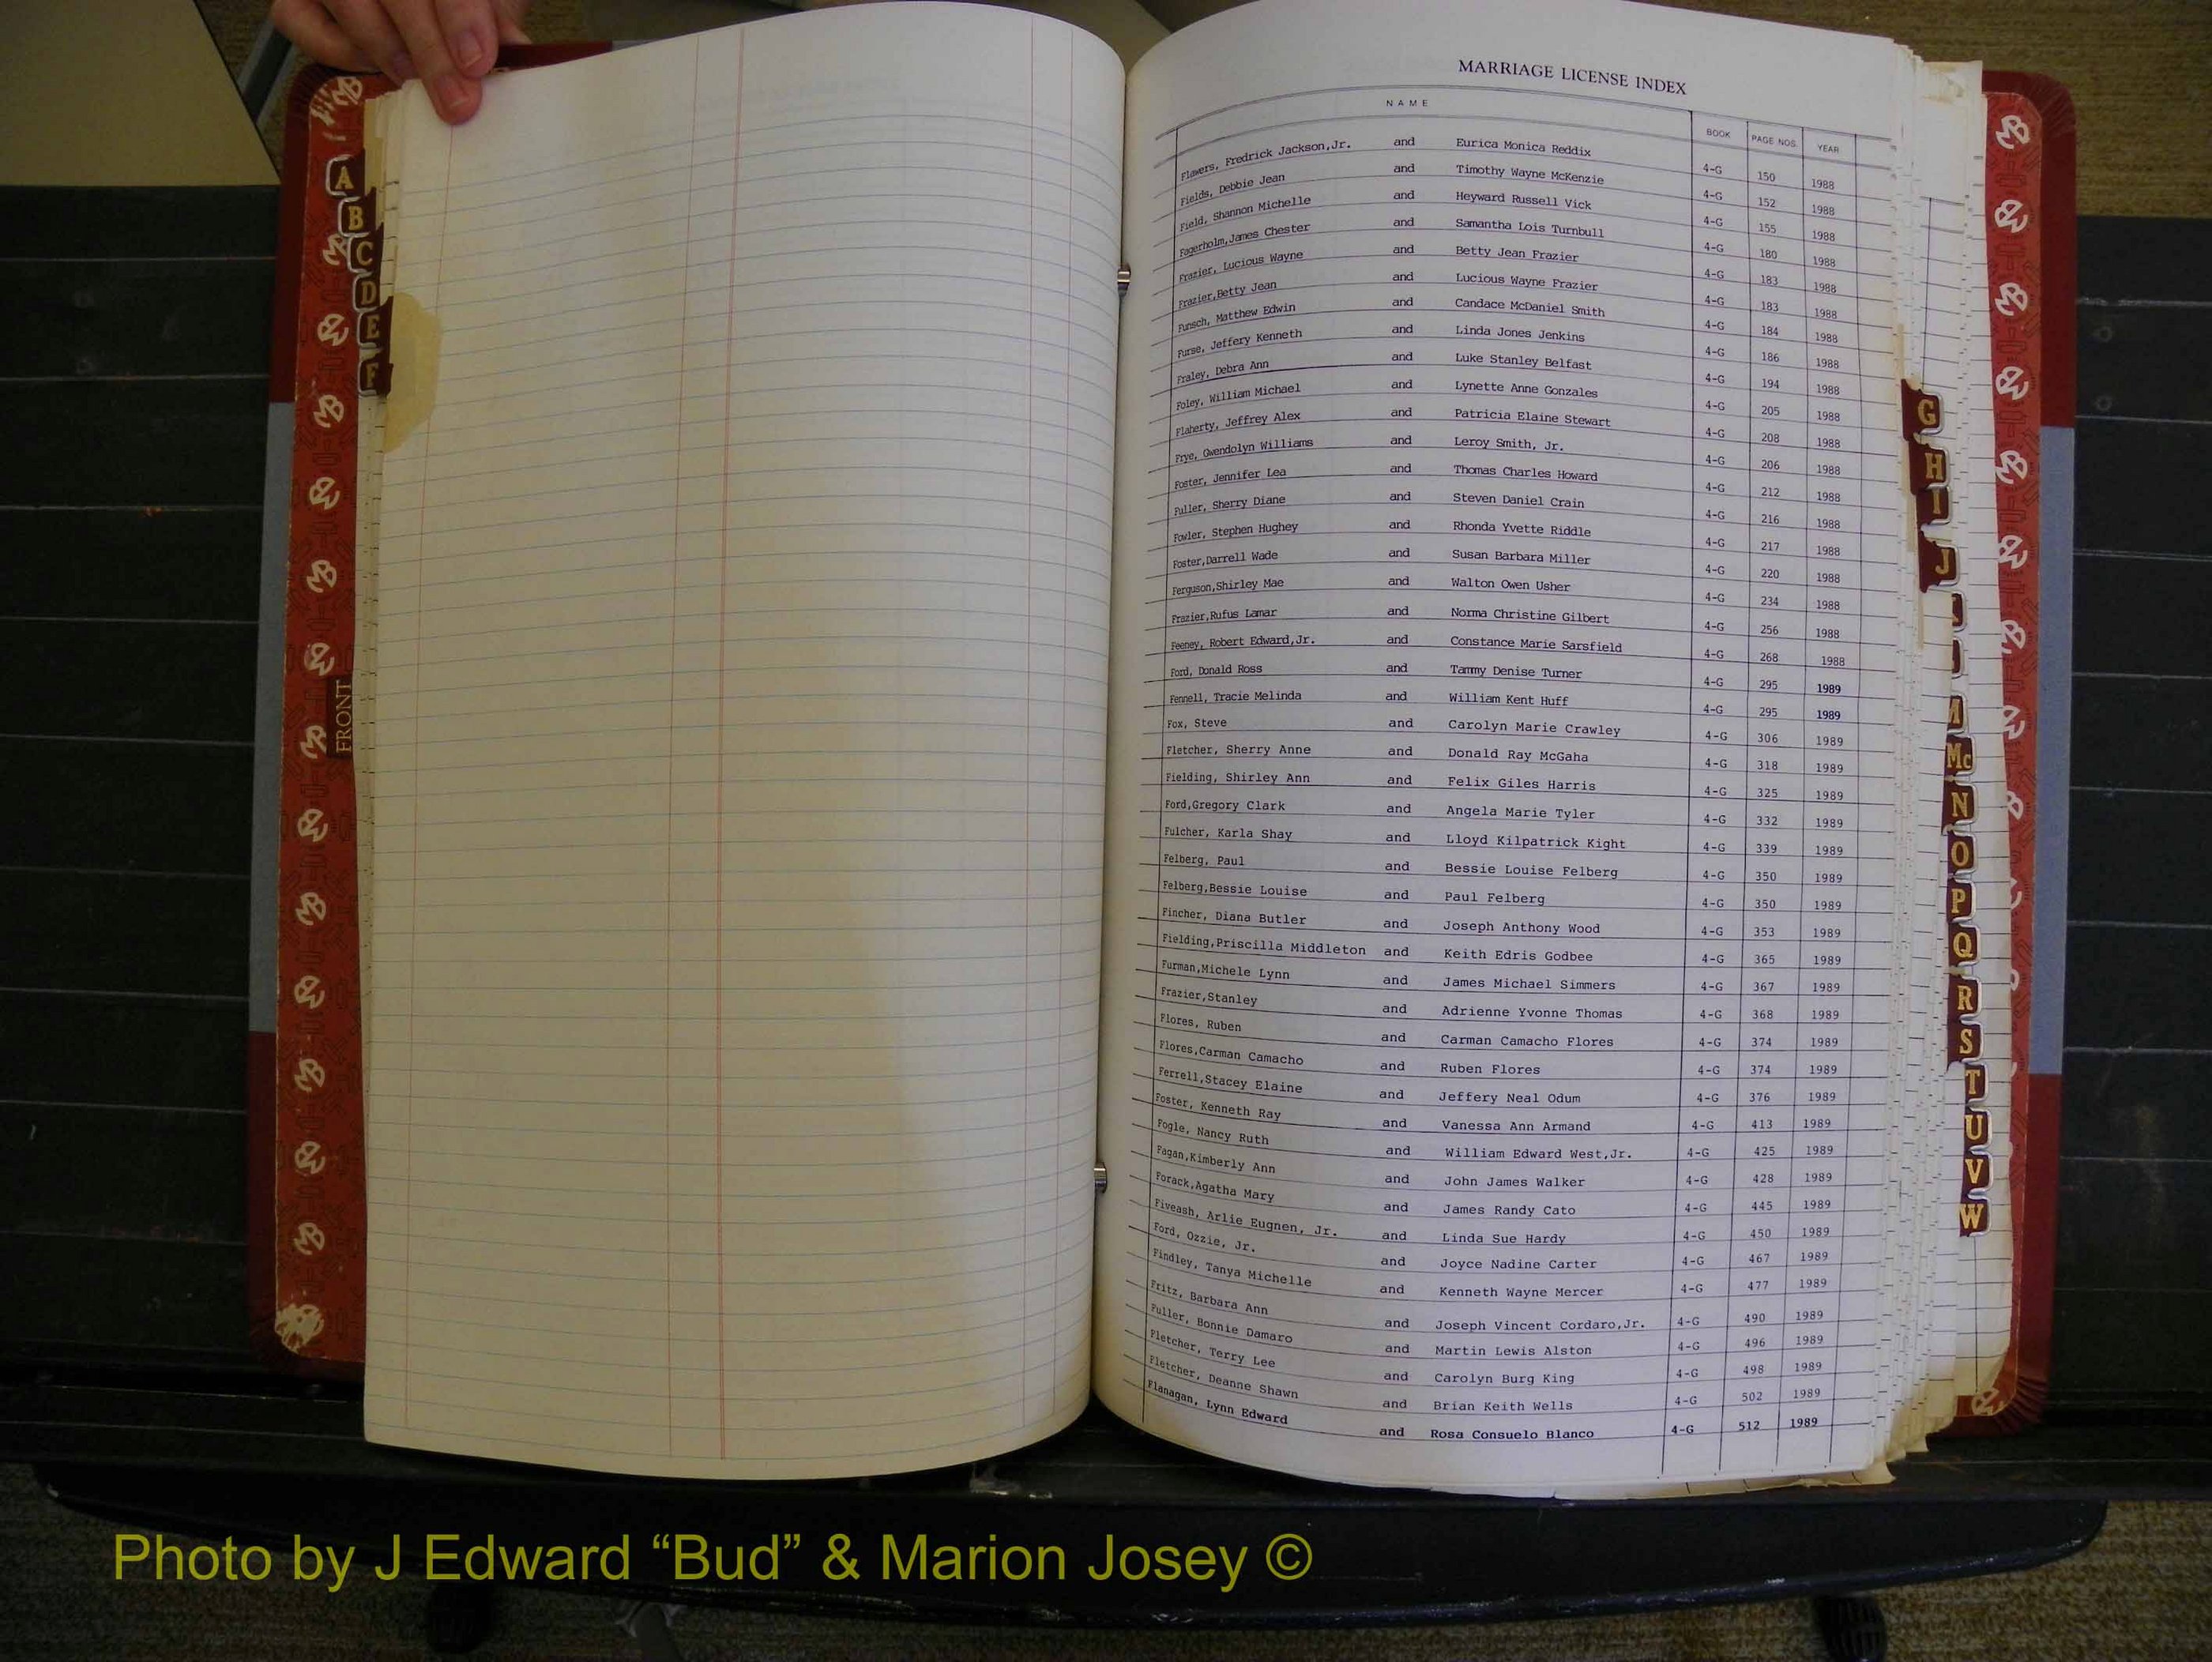 MARRIAGE LICENSE INDEX
NAME BOOK PAGE NOS. YEAR
Flowers, Fredrick Jackson,Jr. and Eurica Monica Reddix 4-G 150 1988
Fields, Debbie Jean and Timothy Wayne McKenzie 4-G 152 1988
Field, Shannon Michelle and Heyward Russell Vick 4-G 155 1988
Fagerholm,James Chester and Samantha Lois Turnbull 4-G 180 1988
Frazier, Lucious Wayne and Betty Jean Frazier 4-G 183 1988
Frazier,Betty Jean and Lucious Wayne Frazier 4-G 183 1988
Funsch, Matthew Edwin and Candace McDaniel Smith 4-G 184 1988
Furse, Jeffery Kenneth and Linda Jones Jenkins 4-G 186 1988
Fraley, Debra Ann and Luke Stanley Belfast 4-G 194 1988
Foley, William Michael and Lynette Anne Gonzales 4-G 205 1988
Flaherty, Jeffrey Alex and Patricia Elaine Stewart 4-G 208 1988
Frye, Gwendolyn Williams and Leroy Smith, Jr. 4-G 206 1988
Foster, Jennifer Lea and Thomas Charles Howard 4-G 212 1988
Fuller, Sherry Diane and Steven Daniel Crain 4-G 216 1988
Fowler, Stephen Hughey and Rhonda Yvette Riddle 4-G 217 1988
Foster,Darrell Wade and Susan Barbara Miller 4-G 220 1988
Ferguson,Shirley Mae and Walton Owen Usher 4-G 234 1988
Frazier,Rufus Lamar and Norma Christine Gilbert 4-G 256 1988
Feeney, Robert Edward,Jr. and Constance Marie Sarsfield 4-G 268 1988
Ford, Donald Ross and Tammy Denise Turner 4-G 295 1989
Fennell, Tracie Melinda and William Kent Huff 4-G 295 1989
Fox, Steve and Carolyn Marie Crawley 4-G 306 1989
Fletcher, Sherry Anne and Donald Ray McGaha 4-G 318 1989
Fielding, Shirley Ann and Felix Giles Harris 4-G 325 1989
Ford,Gregory Clark and Angela Marie Tyler 4-G 332 1989
Fulcher, Karla Shay and Lloyd Kilpatrick Kight 4-G 339 1989
Felberg, Paul and Bessie Louise Felberg 4-G 350 1989
Felberg,Bessie Louise and Paul Felberg 4-G 350 1989
Fincher, Diana Butler and Joseph Anthony Wood 4-G 353 1989
Fielding,Priscilla Middleton and Keith Edris Godbee 4-G 365 1989
Furman,Michele Lynn and James Michael Simmers 4-G 367 1989
Frazier,Stanley and Adrienne Yvonne Thomas 4-G 368 1989
Flores, Ruben and Carman Camacho Flores 4-G 374 1989
Flores,Carman Camacho and Ruben Flores 4-G 374 1989
Ferrell,Stacey Elaine and Jeffery Neal Odum 4-G 376 1989
Foster, Kenneth Ray and Vanessa Ann Armand 4-G 413 1989
Fogle, Nancy Ruth and William Edward West,Jr. 4-G 425 1989
Fagan,Kimberly Ann and John James Walker 4-G 428 1989
Forack,Agatha Mary and James Randy Cato 4-G 445 1989
Fiveash, Arlie Eugnen, Jr. and Linda Sue Hardy 4-G 450 1989
Ford, Ozzie, Jr. and Joyce Nadine Carter 4-G 467 1989
Findley, Tanya Michelle and Kenneth Wayne Mercer 4-G 477 1989
Fritz, Barbara Ann and Joseph Vincent Cordaro,Jr. 4-G 490 1989
Fuller, Bonnie Damaro and Martin Lewis Alston 4-G 496 1989
Fletcher, Terry Lee and Carolyn Burg King 4-G 498 1989
Fletcher, Deanne Shawn and Brian Keith Wells 4-G 502 1989
Flanagan, Lynn Edward and Rosa Consuelo Blanco 4-G 512 1989
A
B
C
D
E
F
FRONT
G
H
I
J
M
Mc
N
O
P
Q
R
S
T
U
V
W
Photo by J Edward “Bud” & Marion Josey ©